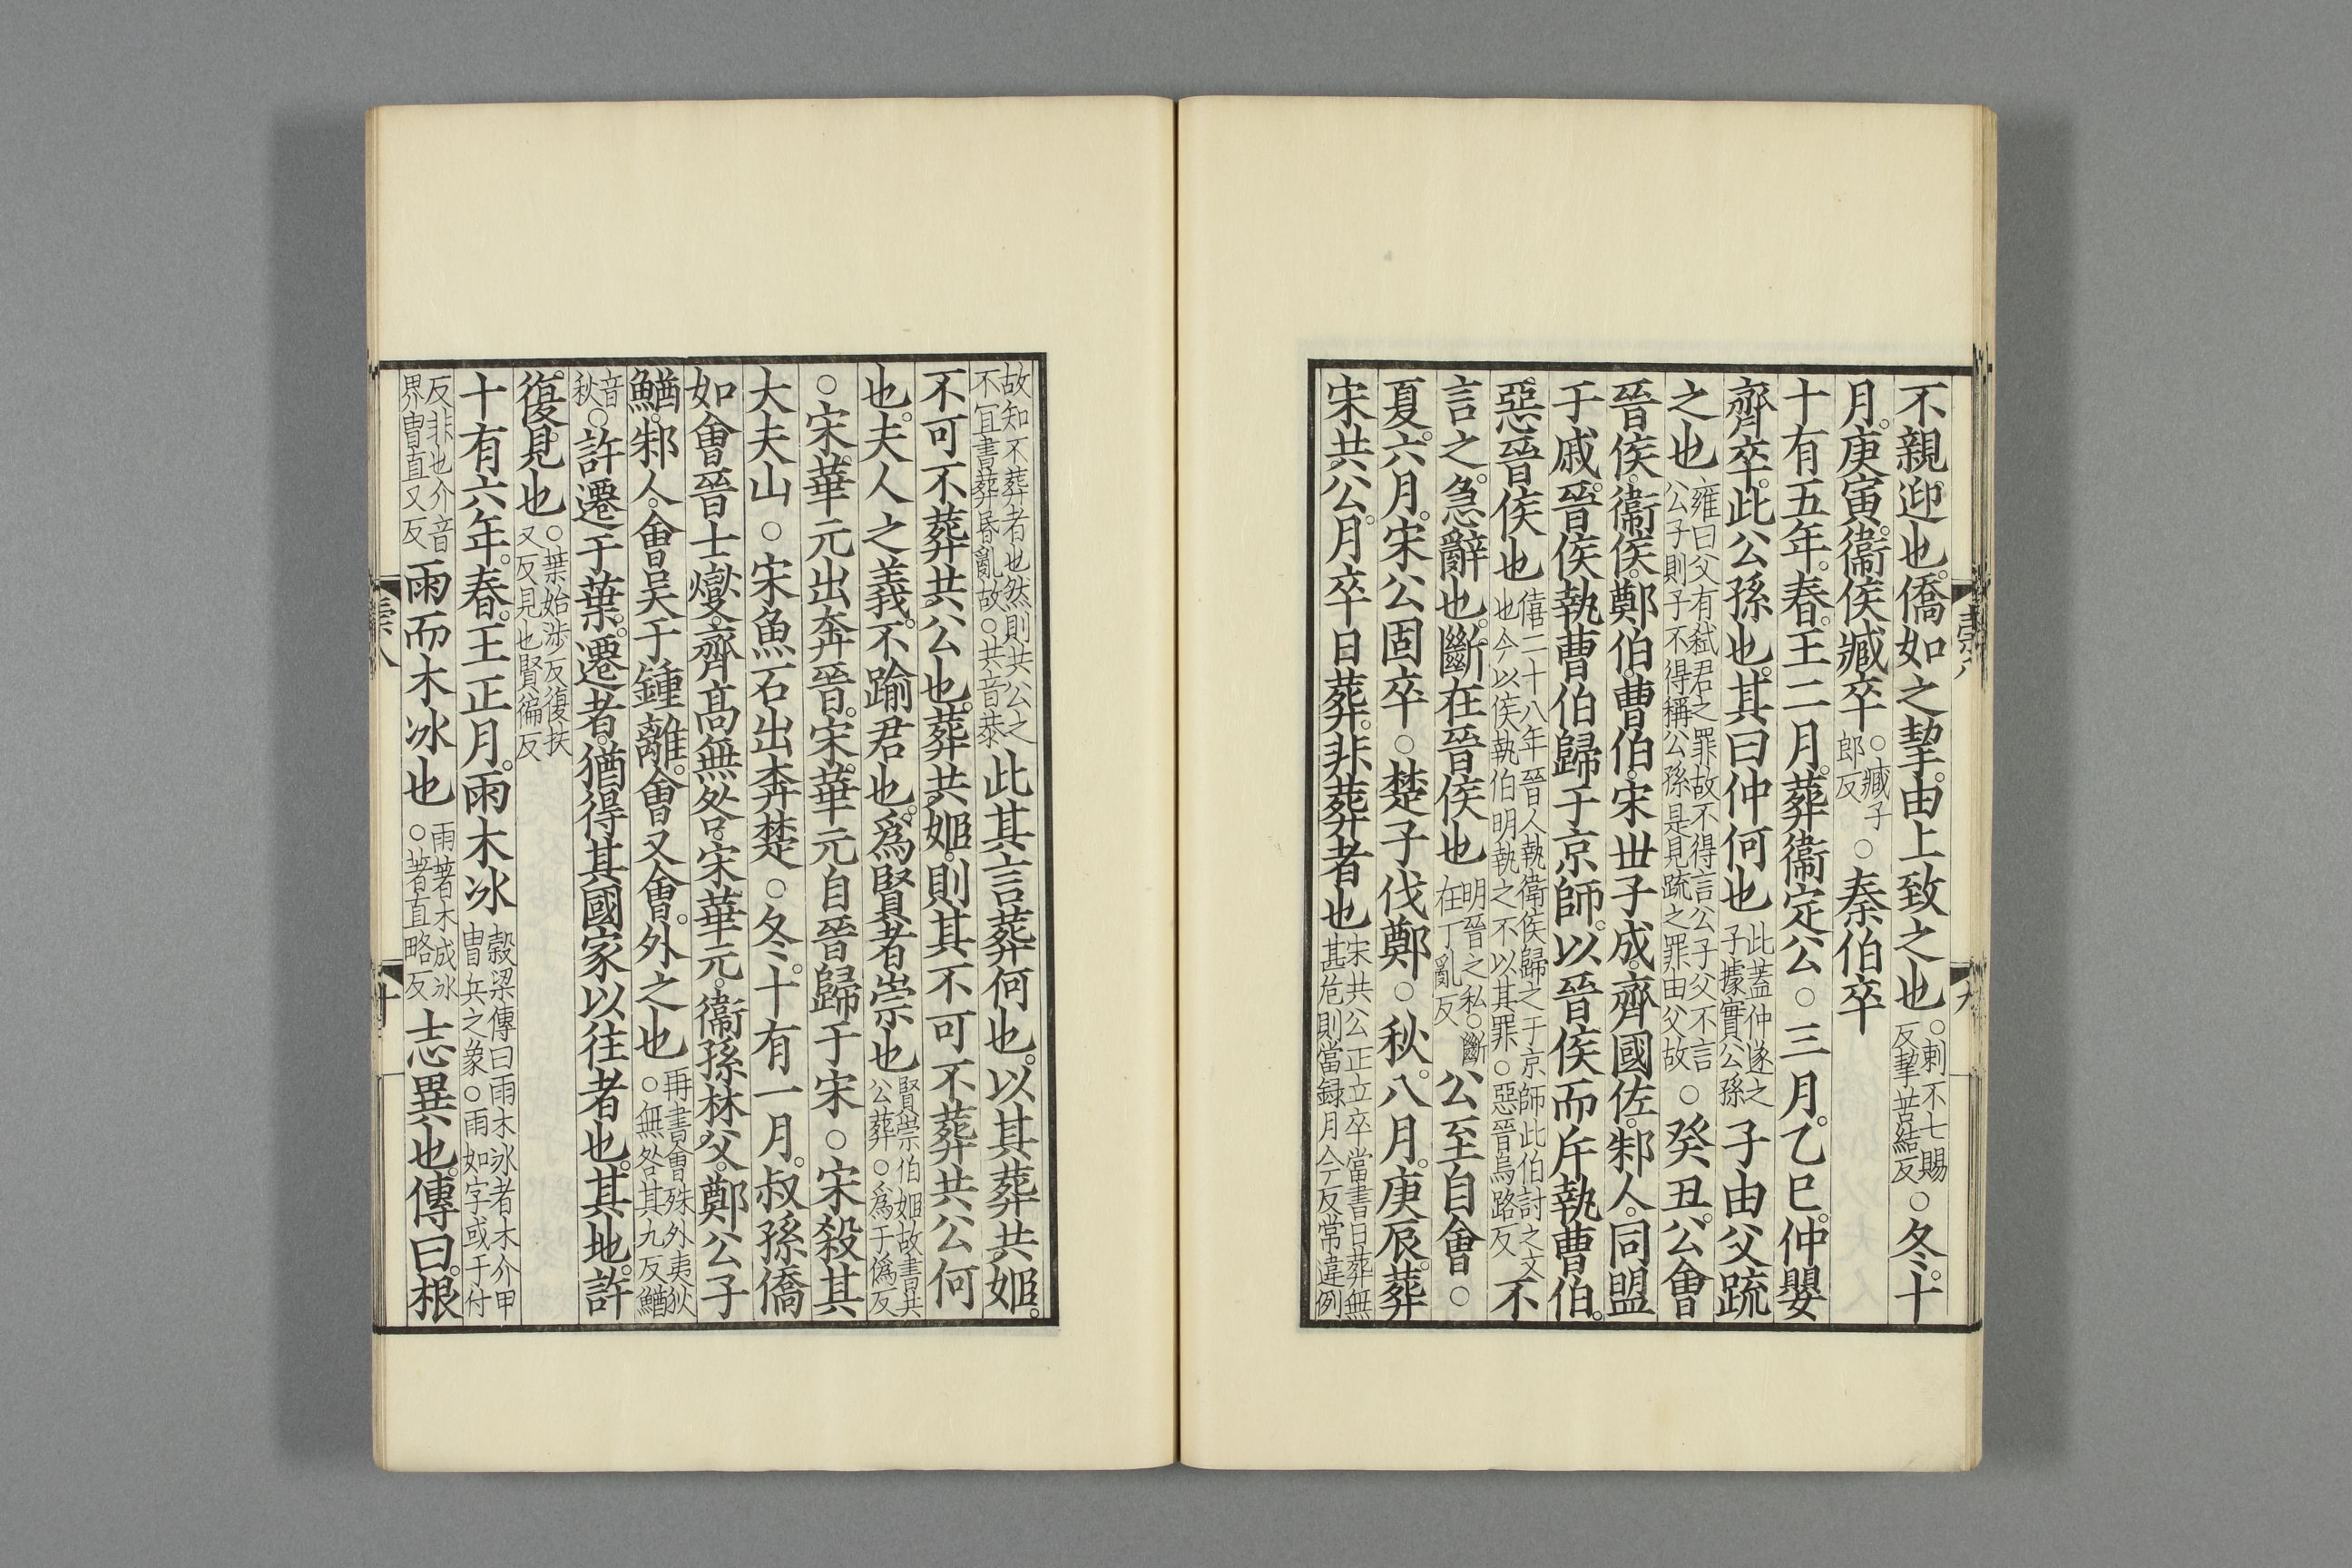 不親。迎也。僑如之挈。由上致之也○刺不七賜反挈苦結反○冬。十
月。庚寅。衞侯臧卒○臧子郎反○秦伯卒
十有五年。春。王二月。葬衞定公○三月。乙巳。仲嬰
齊卒。此公孫也。其曰仲何也此蓋仲遂之子據實公孫子由父疏
之也雍曰父有弑君之罪故不得言公子父不言公子則子不得稱公孫是見疏之罪由父故○癸丑。公會
晉侯。衞侯。鄭伯。曹伯。宋世子成。齊國佐。邾人。同盟
于戚。晉侯執曹伯歸于京師。以晉侯而斥執曹伯。
惡晉侯也僖二十八年晉人執衛侯歸之于京師此伯討之文也今以侯執伯明執之不以其罪○惡晉烏路反不
言之。急辭也。斷在晉侯也明晉之私○斷在丁亂反公至自會○
夏。六月。宋公固卒○楚子伐鄭○秋。八月。庚辰。葬
宋共公。月卒日葬。非葬者也宋共公正立卒當書日葬無甚危則當録月今反常違例
故知不葬者也然則共公之不宜書葬昏亂故○共音恭此其言葬何也。以其葬共姬。
不可不葬共公也。葬共姬。則其不可不葬共公何
也。夫人之義。不踰君也。爲賢者崇也賢崇伯姬故書共公葬○爲于僞反
○宋。華元出奔晉。宋。華元自晉歸于宋○宋殺其
大夫山○宋魚石出奔楚○冬。十有一月。叔孫僑
如會晉士燮。齊高無咎。宋華元。衞孫林父。鄭公子
鰌。邾人。會吴于鍾離。會又會。外之也再書會殊外夷狄○無咎其九反鰌
音秋○許遷于葉。遷者。猶得其國家以往者也。其地。許
復見也○葉始涉反復扶又反見也賢徧反
十有六年。春。王正月。雨木冰穀梁傳曰雨木冰者木介甲冑兵之象○雨如字或于付
反非也介音界冑直又反雨而木冰也雨著木成冰○著直略反志異也。傳曰。根